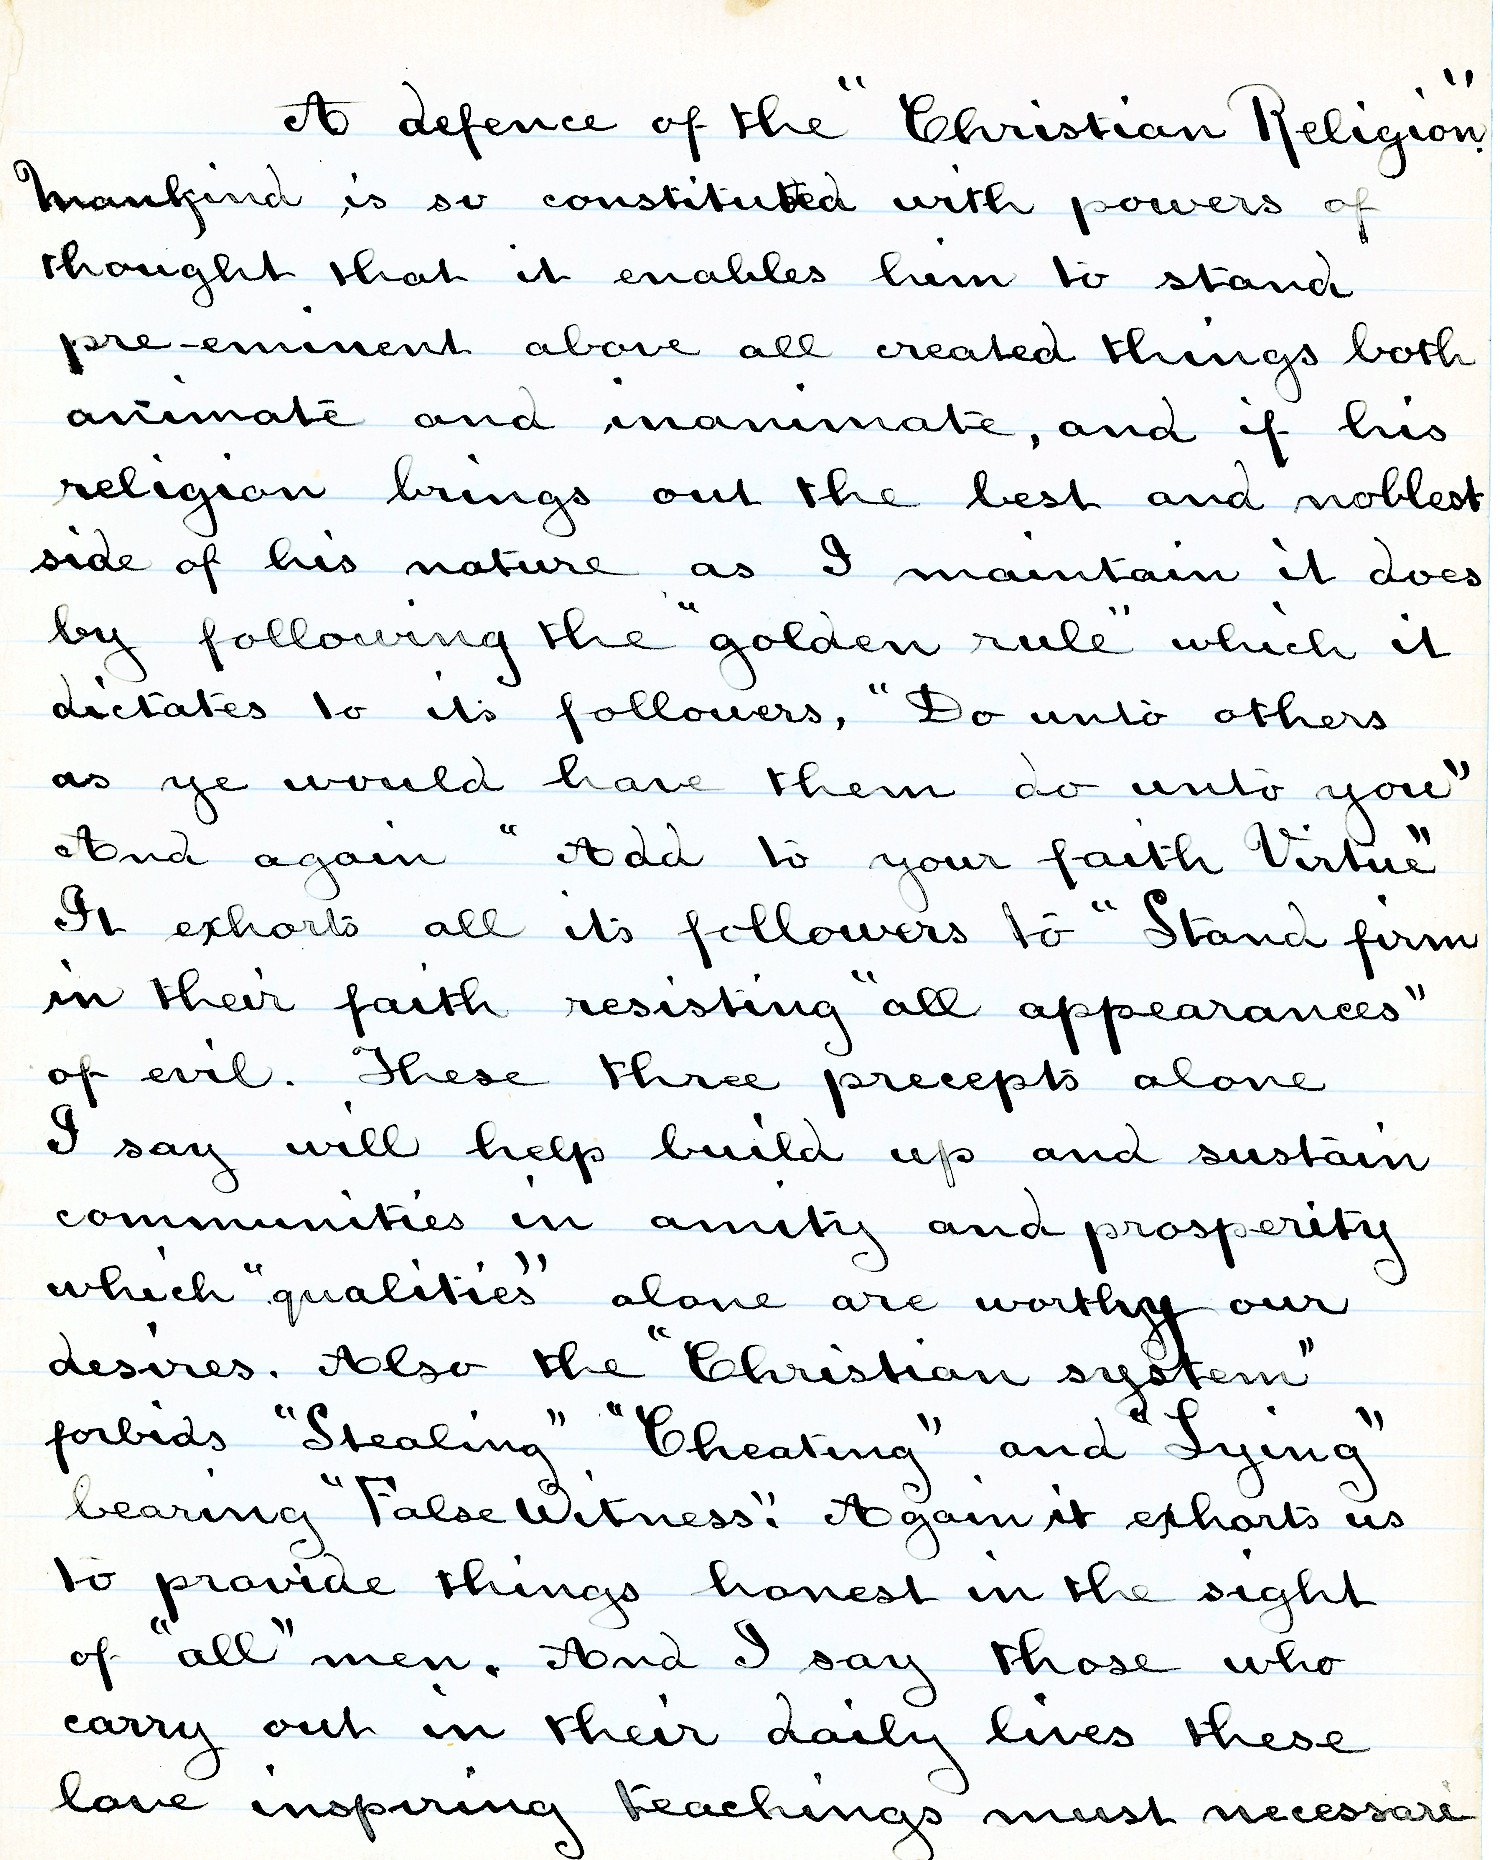 A defence of the "Christian Religion."
Mankind is so constituted with powers of
thought that it enables him to stand
pre-eminent above all created things both
animate and inanimate, and if his
religion brings out the best and noblest
side of his nature as I maintain it does
by following the "golden rule" which it
dictates to its followers, "Do unto others
as ye would have them do unto you"
And again "Add to your faith Virtue"
It exhorts all its followers to "Stand firm
in their faith resisting "all appearances"
of evil. These three precepts alone
I say will help build up and sustain
communities in amity and prosperity
which "qualities" alone are worthy our
desires. Also the "Christian system"
forbids "Stealing" "Cheating" and "Lying"
bearing "False Witness". Again it exhorts us
to provide things honest in the sight
of "all" men. And I say those who
carry out in their daily lives these
love inspiring teachings must necessari